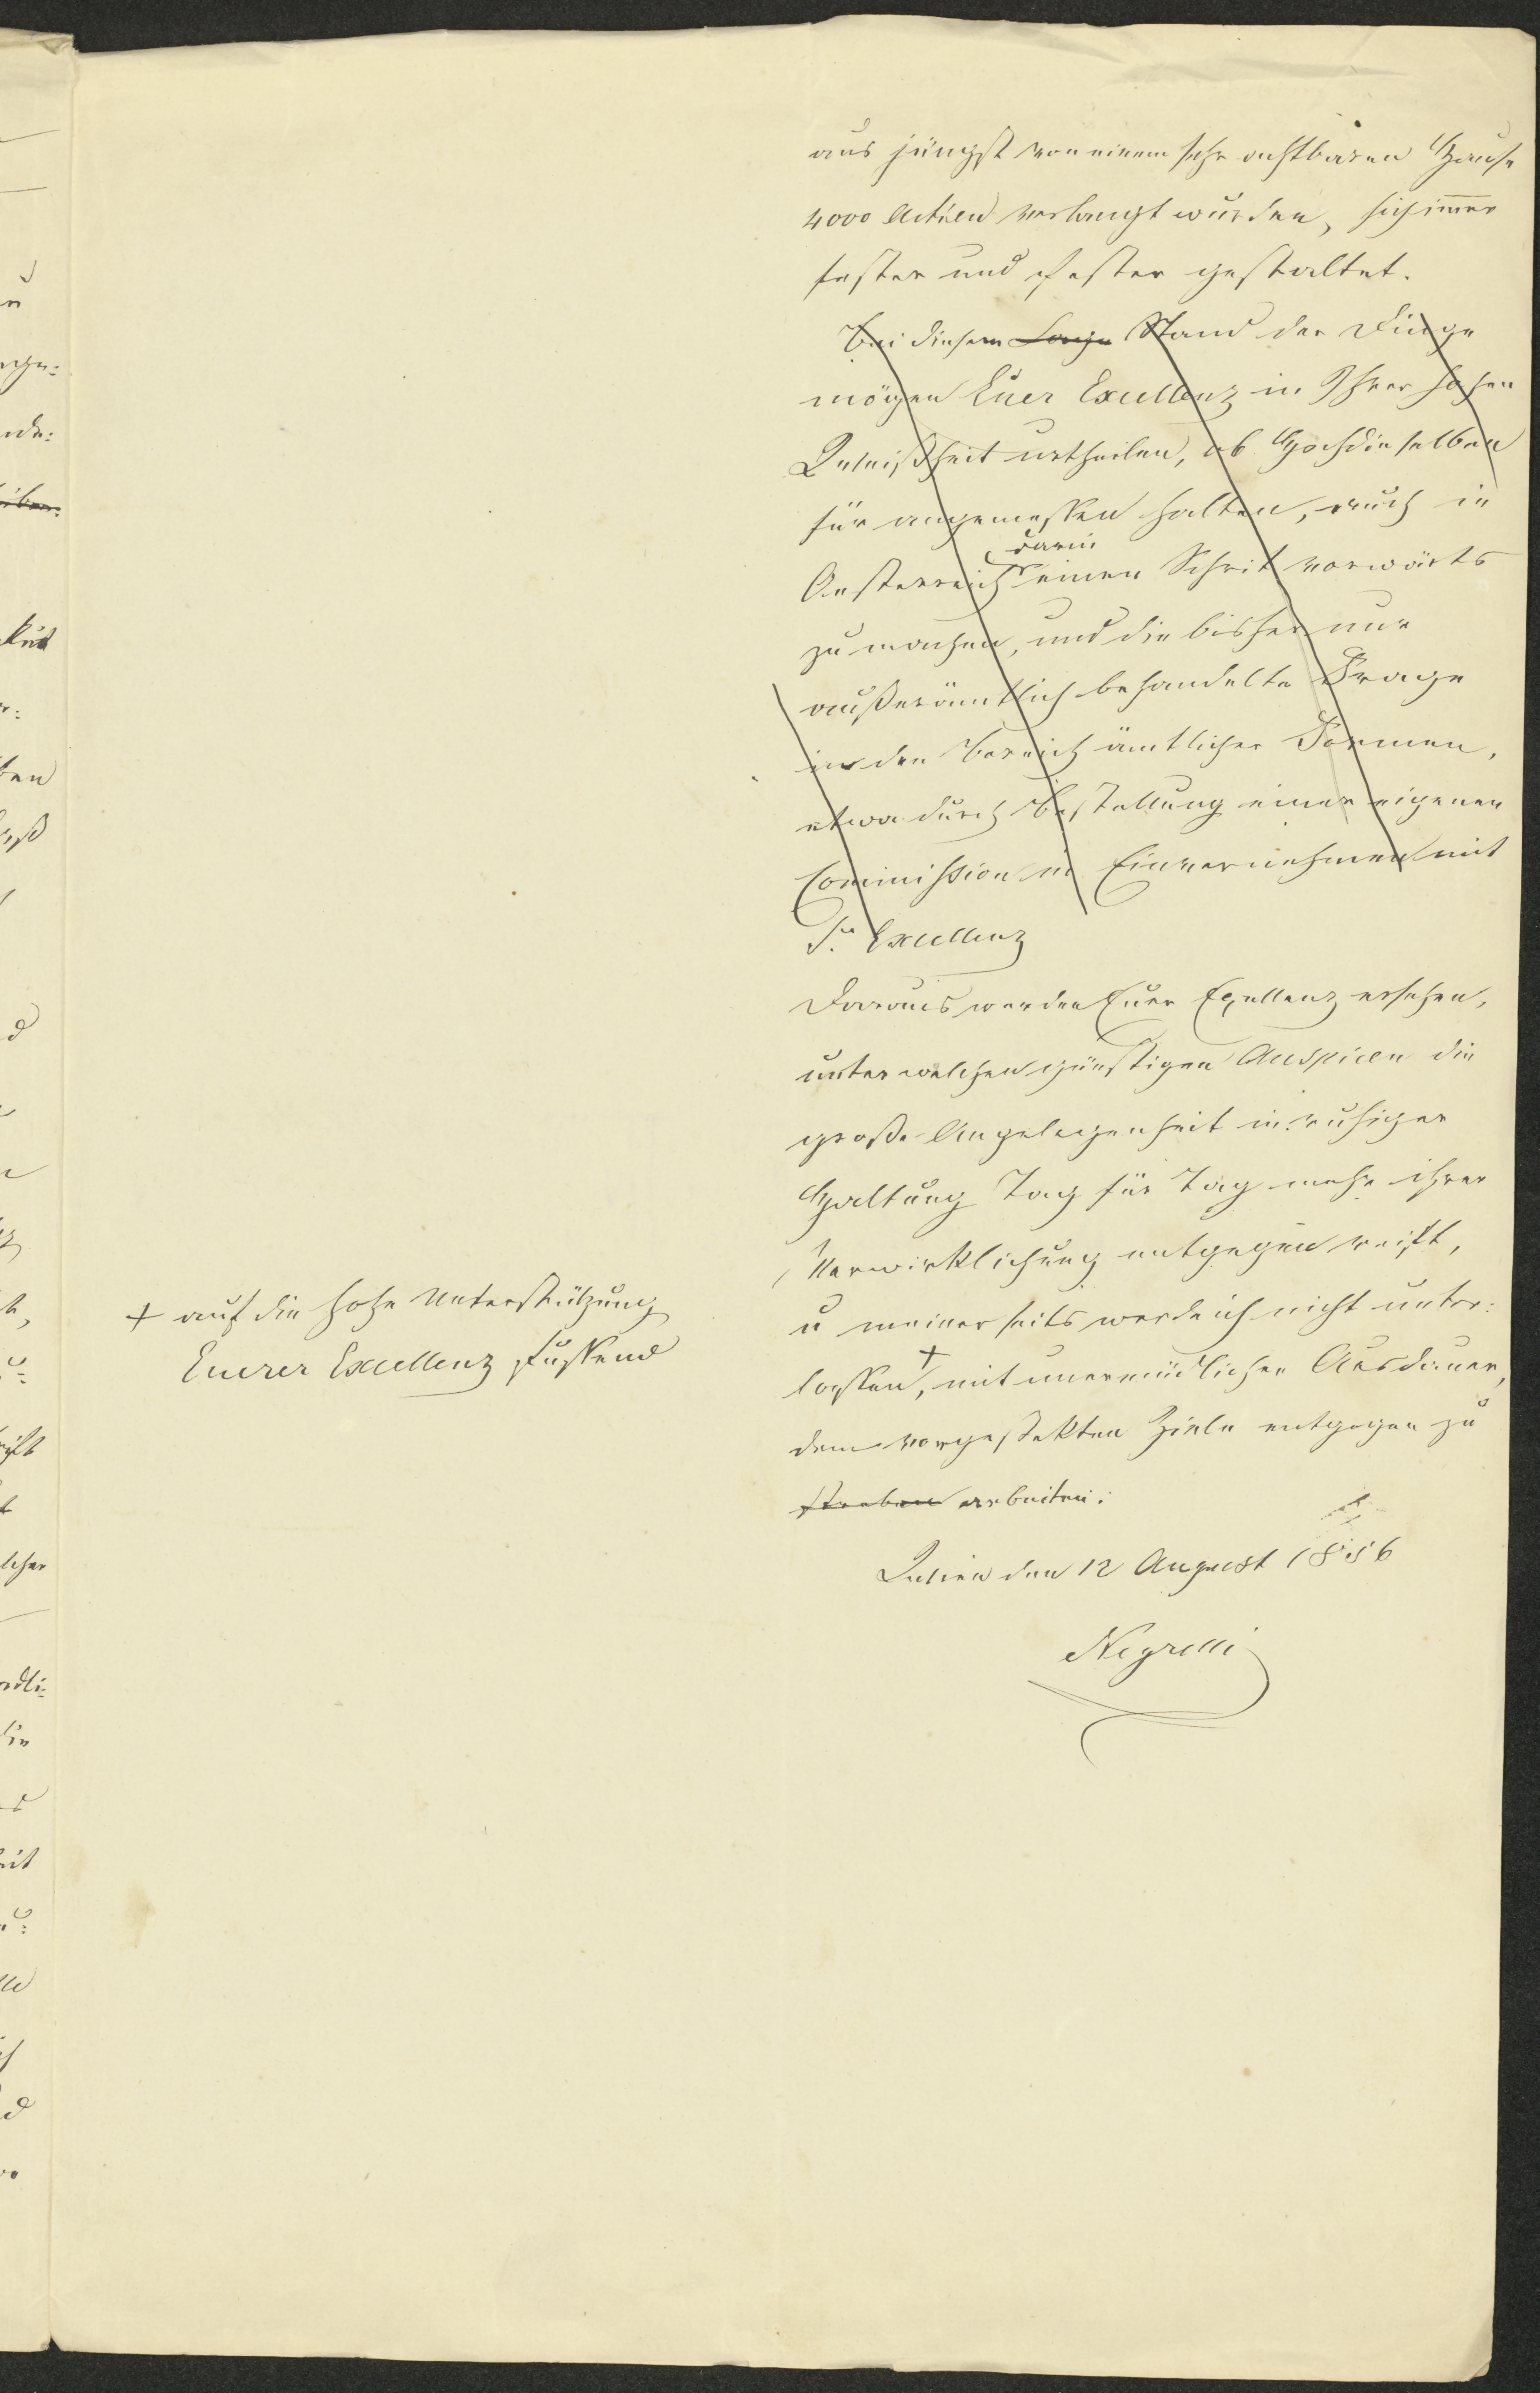 aus jüngst von einem sehr achtbaren Hause
4000 Actien verlangt wurden, sich immer
fester und fester gestaltet.
Bei diesem Lage Stand der Dinge
mögen Euer Excellenz in Ihrer hohen
Weißheit urtheilen, ob Hochdieselben
für angemessen halten, auch in
darin
Oesterreich einen Schrit vorwärts
zu machen, und die bisher nur
außerämtlich behandelte Frage
in den Bereich ämtlicher Formen,
etwa durch Bestellung einer eigenen
Commission in Einvernehmen mit
Sr Excellenz
Daraus werden Euer Exellenz ersehen,
unter welchen günstigen Auspicen die
große Angelegenheit in ruhiger
Haltung Tag für Tag mehr ihrer
Verwirklichung entgegen reift,
u meinerseits werde ich nicht unter:
lassen, + mit unermüdlicher Ausdauer,
dem vorgestekten Ziele entgegen zu
streben arbeiten.
Wien den 12 August 1856
Negrelli
+ auf die hohe Unterstützung
Euerer Excellenz fussend